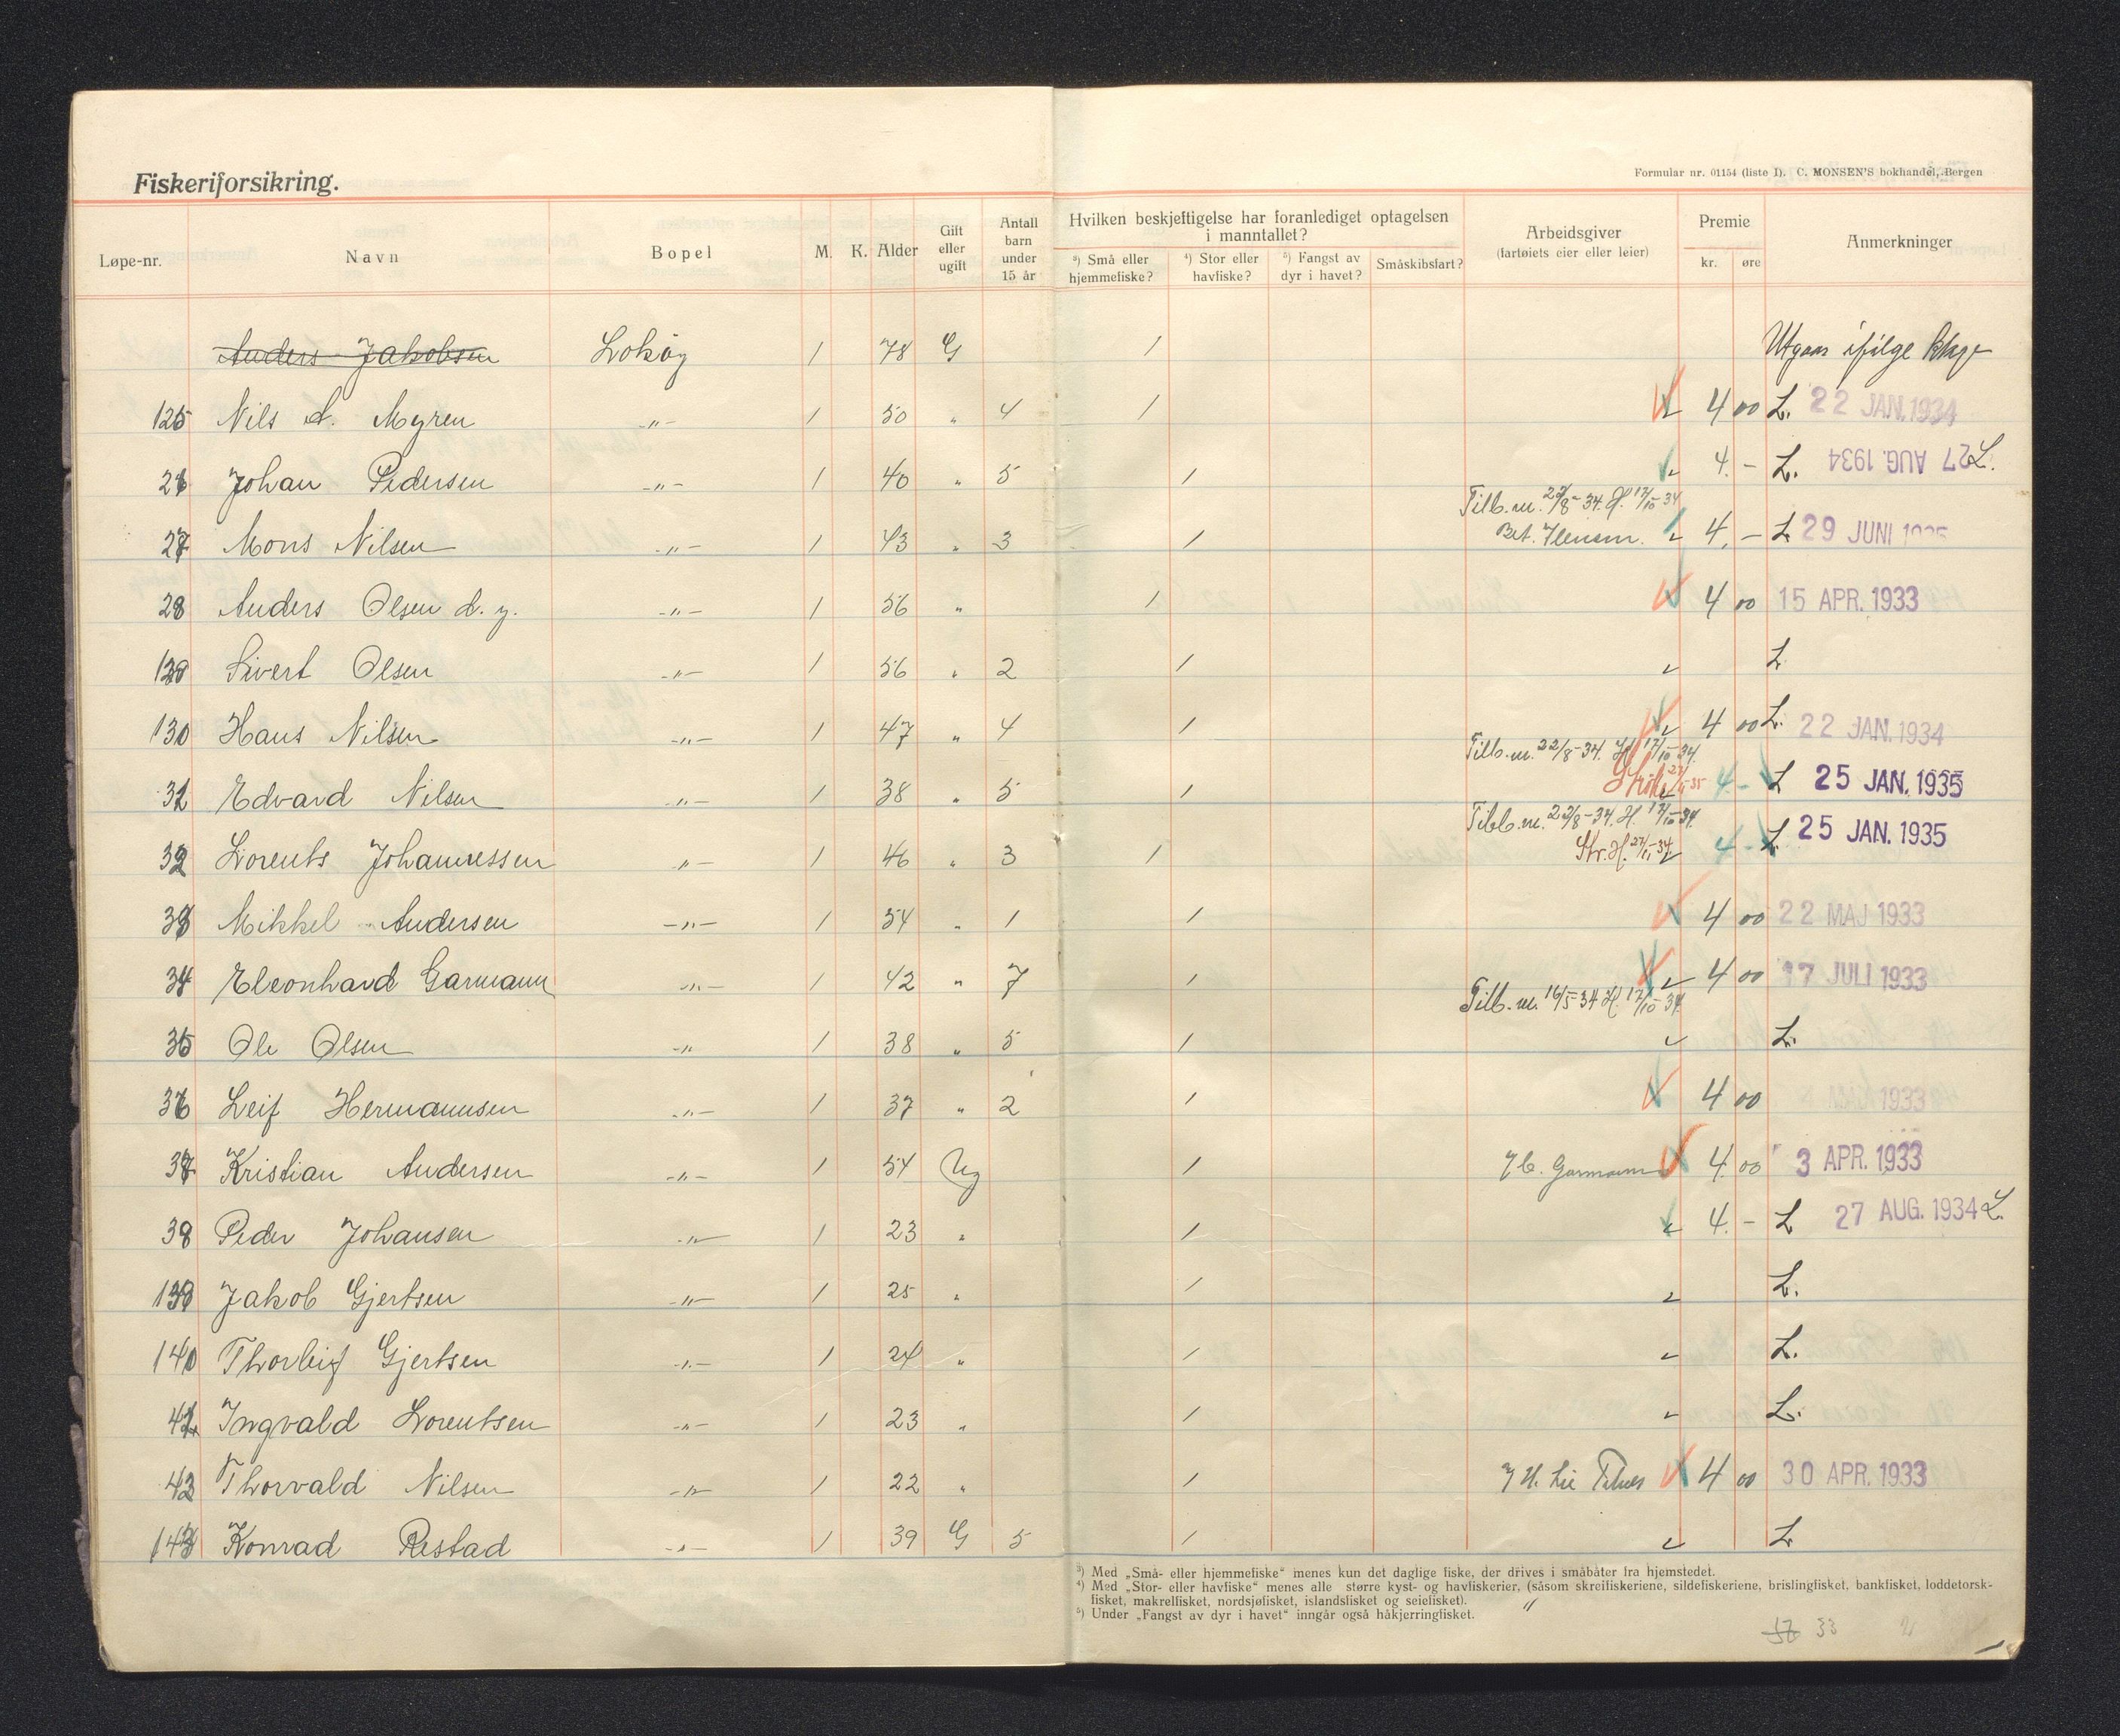 Fiskeriforsikring.
Formular nr. 01154 (liste I). C. MONSEN'S bokhandel, Bergen
Løpe-nr. Navn Bopel M. K. Alder Gift eller ugift Antall barn under 15 år Hvilken beskjeftigelse har foranlediget optagelsen i manntallet? ³) Små eller hjemmefiske? ⁴) Stor eller havfiske? ⁵) Fangst av dyr i havet? Småskibsfart? Arbeidsgiver (fartøiets eier eller leier) Premie kr. øre Anmerkninger
Anders Jakobsen Lokøy 1 78 G 1 Utgaar ifølge klage
125 Nils A. Myren -"- 1 50 " 4 1 4 00 L. 22 JAN. 1934
26 Johan Pedersen -"- 1 40 " 5 1 4. - L. 27 AUG. 1934 L.
Tilb. m. 22/8-34. H. 17/10-34
27 Mons Nilsen -"- 1 43 " 3 1 Bet. 4. - L 29 JUNI 1935
28 Anders Olsen d. y. -"- 1 56 " 1 4 00 15 APR. 1933
129 Sivert Olsen -"- 1 56 " 2 1 L
130 Hans Nilsen -"- 1 47 " 4 1 4 00 L. 22 JAN. 1934
Tilb. m. 22/8-34. H. 17/10-34.
31 Edvard Nilsen -"- 1 38 " 5 1 4 - L 25 JAN. 1935
Tilb. m. 22/8-34. H. 17/10-34.
32 Lorents Johannessen -"- 1 46 " 3 1 Str. H. 27/11-34. 4 - L 25 JAN. 1935
33 Mikkel Andersen -"- 1 54 " 1 1 4 00 22 MAJ 1933
34 Eleonhard Garmann -"- 1 42 " 7 1 4 00 17 JULI 1933
Tilb. m. 16/5-34 H. 17/10-34.
35 Ole Olsen -"- 1 38 " 5 1 L.
36 Leif Hermannsen -"- 1 37 " 2 1 4 00 MAJ 1933
37 Kristian Andersen -"- 1 54 Ug 1 Garmann 4. 00 3 APR. 1933
38 Peder Johansen -"- 1 23 " 1 4. - L 27 AUG. 1934 L.
139 Jakob Gjertsen -"- 1 25 " 1 L.
140 Thorleif Gjertsen -"- 1 24 " 1 L.
41 Ingvald Lorentsen -"- 1 23 " 1 L.
42 Thorvald Nilsen -"- 1 22 " 1 Lie 4 00 30 APR. 1933
143 Konrad Restad -"- 1 39 G 5 1 L
³) Med „Små- eller hjemmefiske“ menes kun det daglige fiske, der drives i småbåter fra hjemstedet.
⁴) Med „Stor- eller havfiske“ menes alle større kyst- og havfiskerier, (såsom skreifiskeriene, sildefiskeriene, brislingfisket, bankfisket, loddetorsk-
fisket, makrellfisket, nordsjøfisket, islandsfisket og seiefisket).
⁵) Under „Fangst av dyr i havet“ inngår også håkjerringfisket.
33